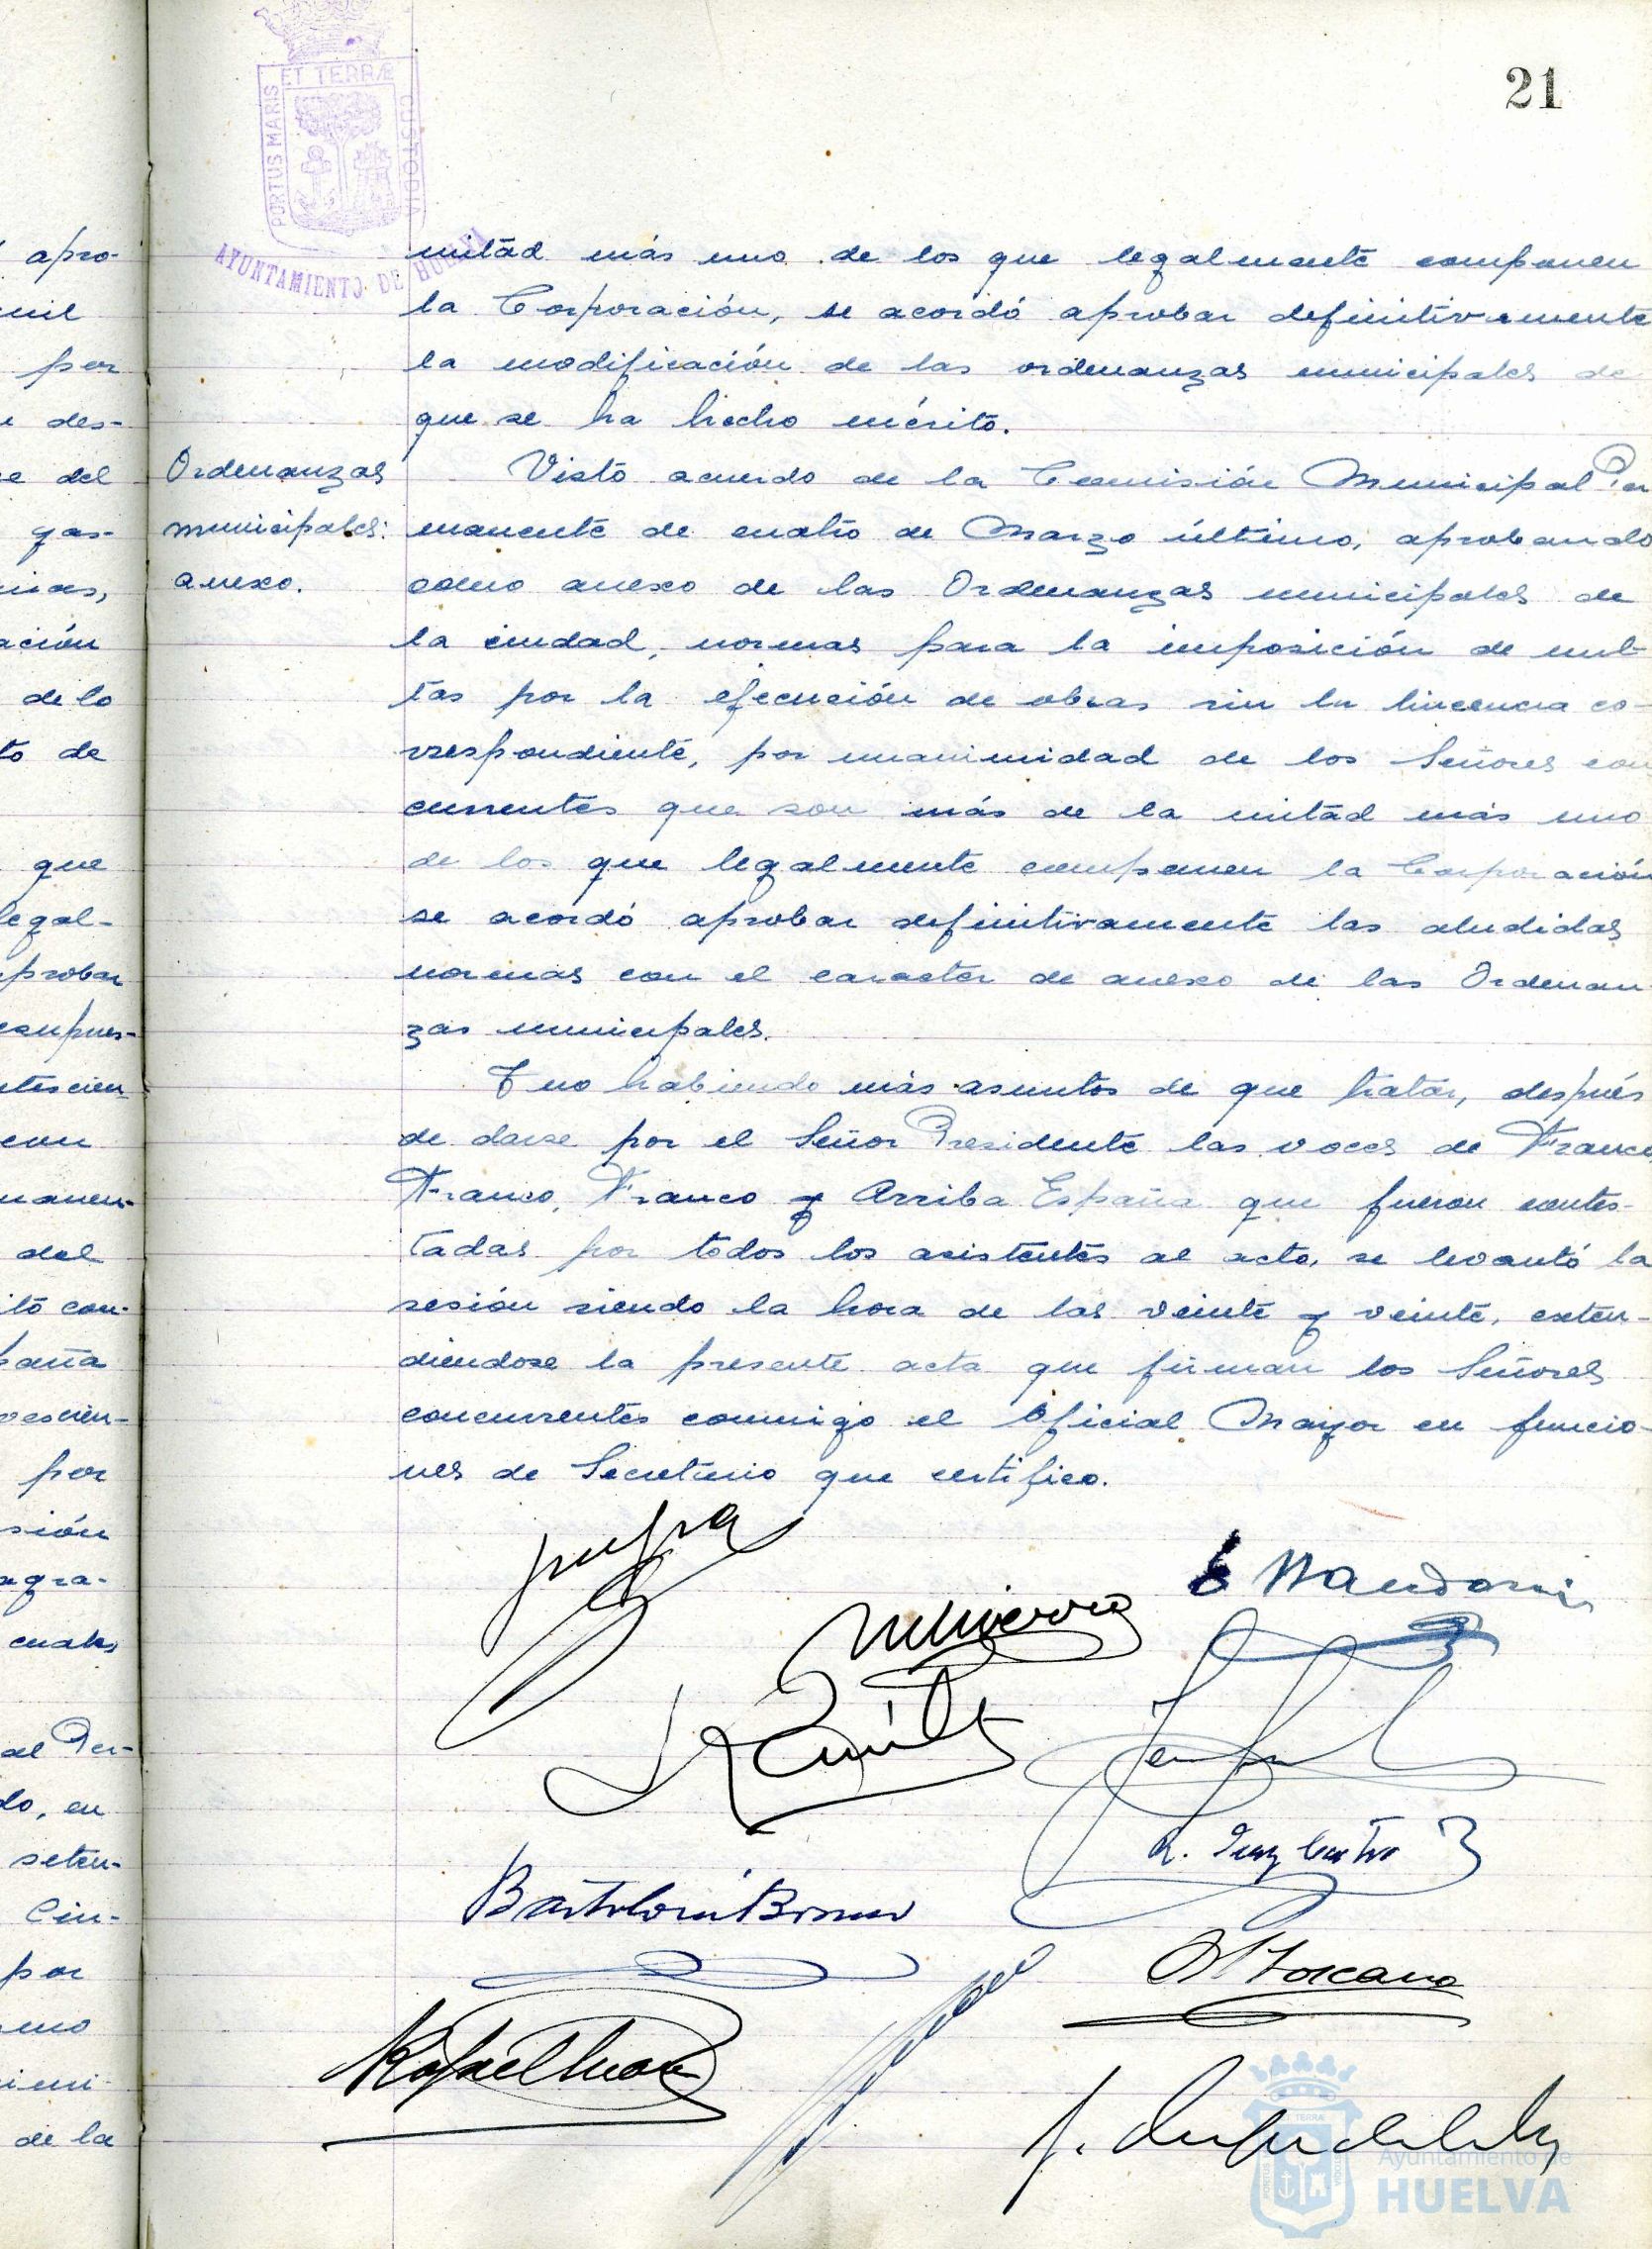 21
ET TERRÆ
PORTUS MARIS
CUSTODIA
AYUNTAMIENTO DE HUELVA
mitad más uno de los que legalmente componen
la Corporación, se acordó aprobar definitivamente
la modificación de las ordenanzas municipales de
que se ha hecho mérito.
Ordenanzas
municipales:
anexo.
Visto acuerdo de la Comisión Municipal Per
manente de cuatro de Marzo último, aprobando
como anexo de las Ordenanzas municipales de
la ciudad, normas para la imposición de mul-
tas por la ejecución de obras sin la lincencia co-
rrespondiente, por unanimidad de los Señores con
currentes que son más de la mitad más uno
de los que legalmente componen la Corporación
se acordó aprobar definitivamente las aludidas
normas con el caracter de anexo de las Ordenan
zas municipales.
Y no habiendo más asuntos de que tratar, después
de darse por el Señor Presidente las voces de Franco
Franco, Franco y Arriba España que fueron contes-
tadas por todos los asistentes al acto, se levantó la
sesión siendo la hora de las veinte y veinte, exten-
diendose la presente acta que firman los Señores
concurrentes conmigo el Oficial Mayor en funcio-
nes de Secretario que certifico.
apro-
mil
por
des-
del
gas-
ación
de lo
de
que
legal-
probar
con
del
con-
por
sión
cuatro
al Per-
do, en
seten-
Cin-
por
uno
de la
R. Díaz Castro
Toscano
Rafael
Ayuntamiento de
HUELVA